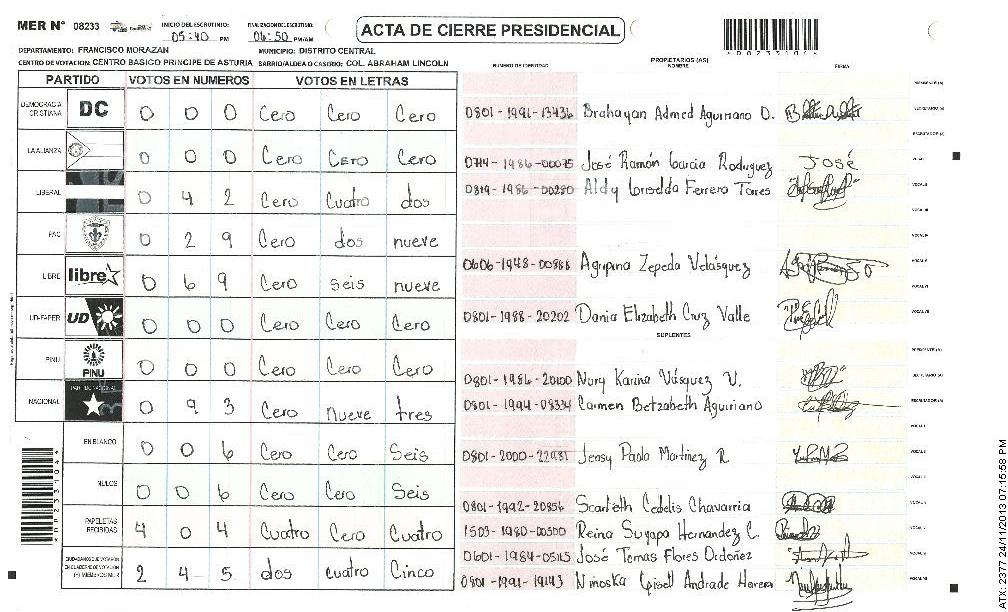 MER N° 08233
INICIO DEL ESCRUTINIO: 05:40 PM
FINALIZACION DEL ESCRUTINIO: 06:50 PM/AM
ACTA DE CIERRE PRESIDENCIAL
DEPARTAMENTO: FRANCISCO MORAZAN MUNICIPIO: DISTRITO CENTRAL
CENTRO DE VOTACION: CENTRO BASICO PRINCIPE DE ASTURIA BARRIO/ALDEA O CASERIO: COL. ABRAHAM LINCOLN
PARTIDO VOTOS EN NUMEROS VOTOS EN LETRAS
DEMOCRACIA CRISTIANA DC 0 0 0 Cero Cero Cero
LA ALIANZA 0 0 0 Cero Cero Cero
LIBERAL 0 4 2 Cero Cuatro dos
PAC 0 2 9 Cero dos nueve
LIBRE libre 0 6 9 Cero seis nueve
UD-FAPER UD 0 0 0 Cero Cero Cero
PINU PINU 0 0 0 Cero Cero Cero
NACIONAL PARTIDO NACIONAL 0 9 3 Cero nueve tres
EN BLANCO 0 0 6 Cero Cero Seis
NULOS 0 0 6 Cero Cero Seis
PAPELETAS RECIBIDAS 4 0 4 Cuatro Cero Cuatro
CIUDADANOS QUE VOTARON EN CUADERNO DE VOTACION (+) MIEMBROS MER 2 4 5 dos cuatro Cinco
NUMERO DE IDENTIDAD PROPIETARIOS (AS) NOMBRE FIRMA
PRESIDENTE (A)
0801-1991-13436 Brahayan Admed Aguiriano O. SECRETARIO (A)
ESCRUTADOR (A)
0714-1986-00075 José Ramón Garcia Rodriguez JOSÉ VOCAL I
0819-1986-00280 Aldy Ferrera Torres VOCAL II
VOCAL III
VOCAL IV
0606-1948-00988 Agripina Zepeda Velásquez VOCAL V
VOCAL VI
0801-1988-20202 Dania Elizabeth Cruz Valle VOCAL VII
SUPLENTES
PRESIDENTE (A)
0801-1986-20100 Nury Karina Vásquez V. SECRETARIO (A)
0801-1994-08334 Carmen Betzabeth Aguiriano ESCRUTADOR (A)
VOCAL I
0801-2000-22931 Jensy Paola Martinez R. VOCAL II
0801-1992-20856 Scarleth Chavarria
1503-1980-00500 Reina Suyapa Hernandez C.
0601-1984-05115 José Tomas Flores Ordoñez
0801-1991-19143 Ninoska Gisell Andrade Herrera
ATX 2377 24/11/2013 07:15:58 PM